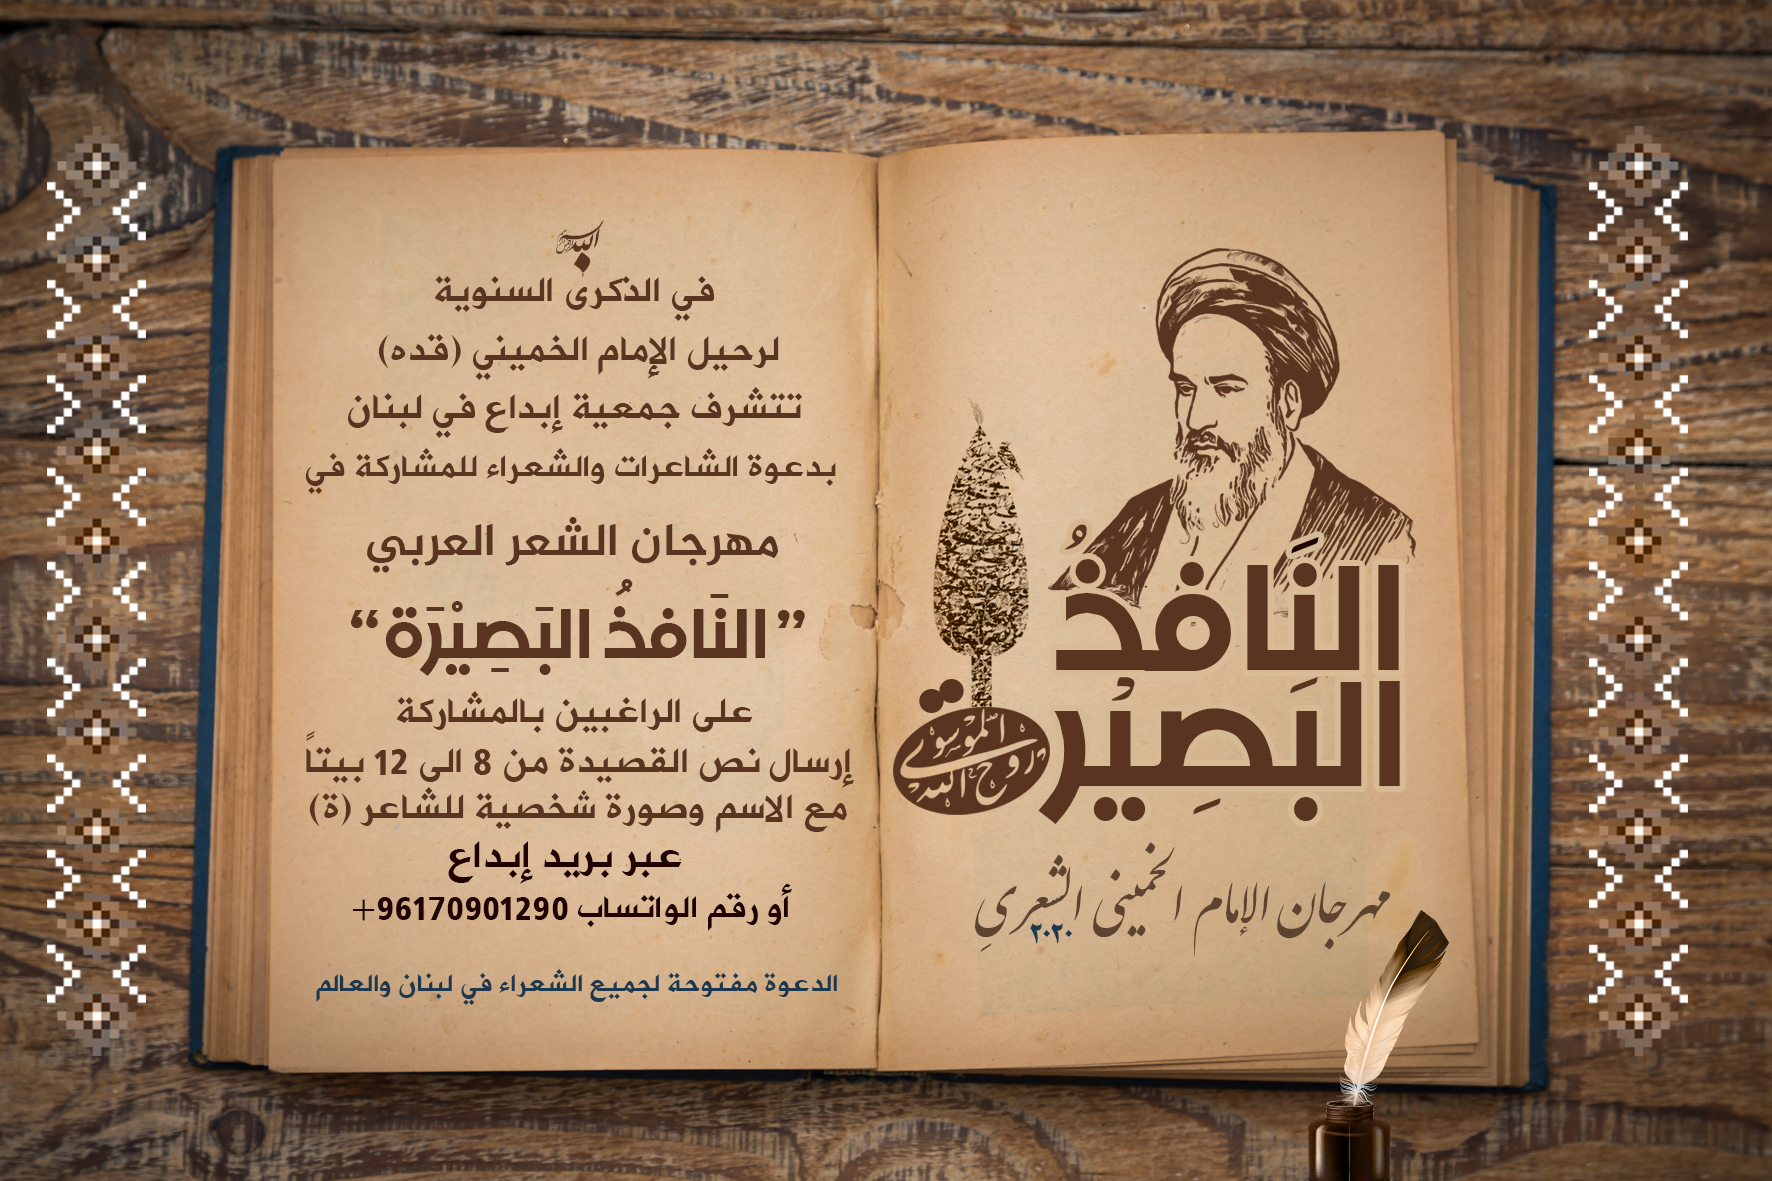 النَافذُ
البَصِيْرة
الموسوي
روح الله
مهرجان الإمام الخميني الشعري
٢٠٢٠
في الذكرى السنوية
لرحيل الإمام الخميني (قده)
تتشرف جمعية إبداع في لبنان
بدعوة الشاعرات والشعراء للمشاركة في
مهرجان الشعر العربي
”النَافذُ البَصِيْرَة“
على الراغبين بالمشاركة
إرسال نص القصيدة من 8 الى 12 بيتاً
مع الاسم وصورة شخصية للشاعر (ة)
عبر بريد إبداع
أو رقم الواتساب 96170901290+
الدعوة مفتوحة لجميع الشعراء في لبنان والعالم